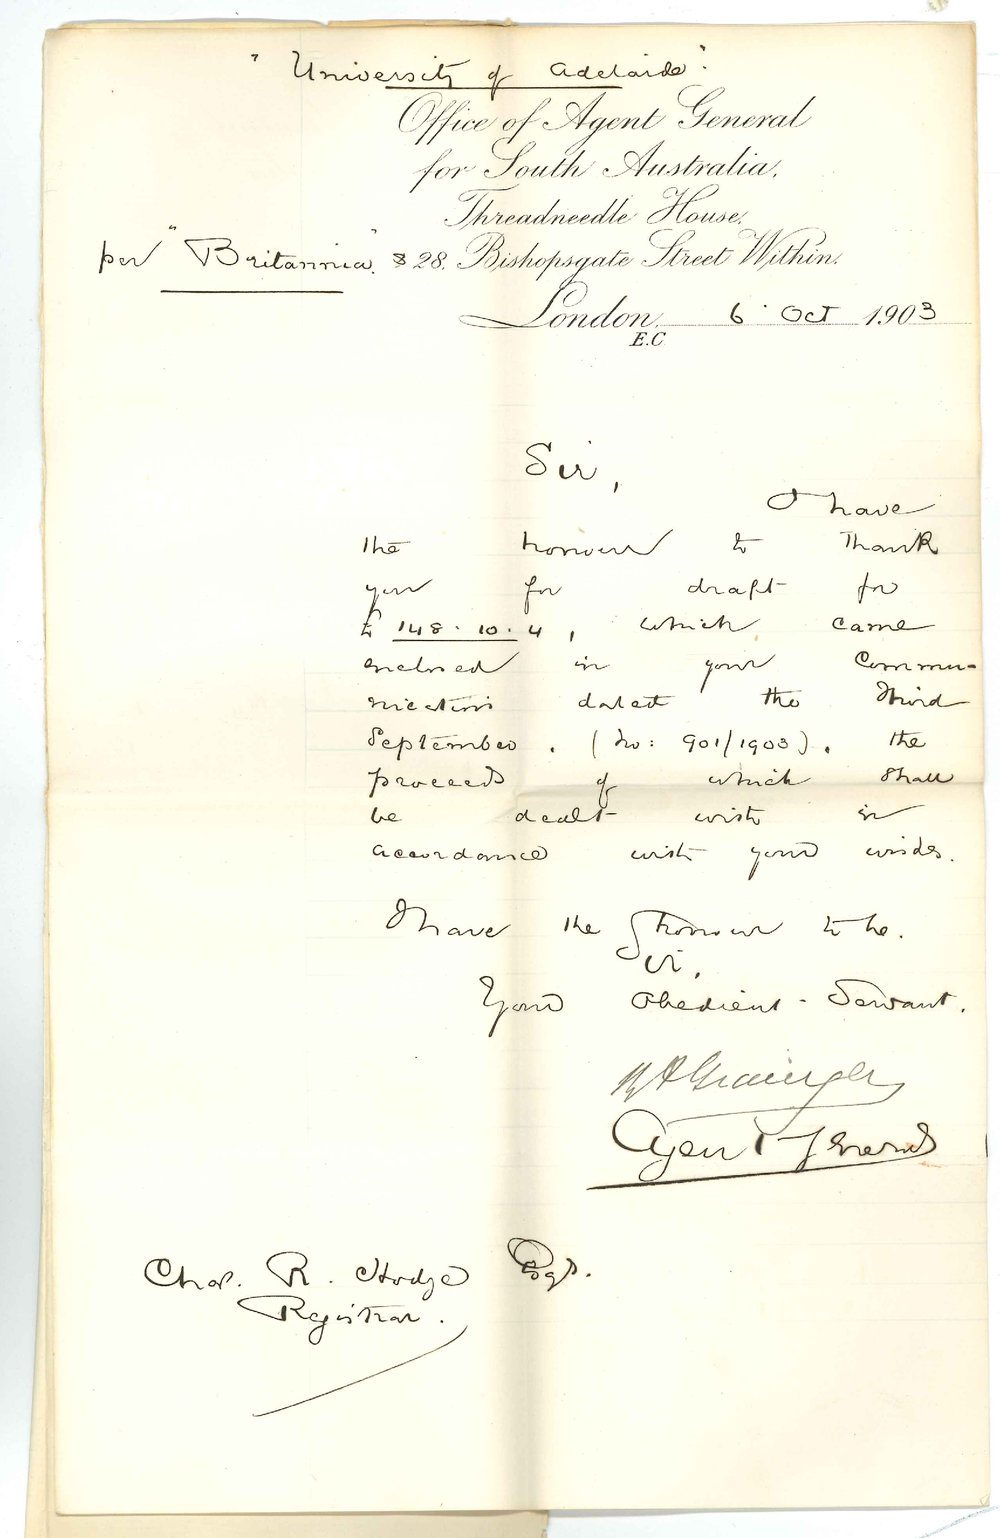 "University of Adelaide".
Office of Agent General
for South Australia,
Threadneedle House,
per "Britannia". & 28, Bishopsgate Street Within.
London, 6 · Oct 1903
E.C.
Sir,
I have
the honour to thank
you for draft for
£ 148.10.4, which came
enclosed in your Commu-
nication dated the third
September. (No: 901/1903). the
proceeds of which shall
be dealt with in
accordance with your wishes.
I have the honour to be.
Sir,
Your Obedient - Servant.
Grainger
Agent General
Chas. R. Hodge Esqr.
Registrar.